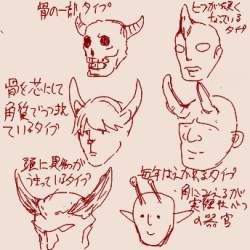 骨の一部タイプ
ヒフが硬く
なっている
タイプ
骨を芯にして
角質でつつまれ
ているタイプ
頭に異物が
っているタイプ
毎年はえかわるタイプ
角にみえるが
べつ
の器官